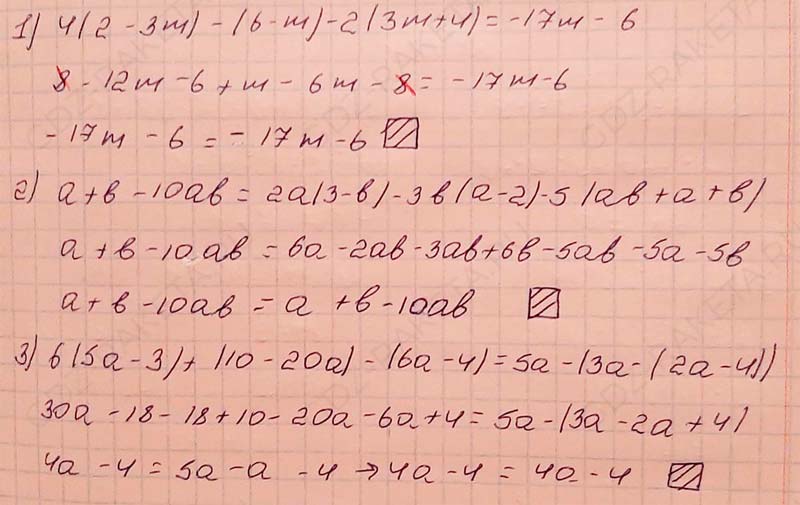 1) 4(2 - 3m) - (6 - m) - 2(3m + 4) = -17m - 6
8 - 12m - 6 + m - 6m - 8 = -17m - 6
-17m - 6 = -17m - 6
2) a + b - 10ab = 2a(3 - b) - 3b(a - 2) - 5(ab + a + b)
a + b - 10ab = 6a - 2ab - 3ab + 6b - 5ab - 5a - 5b
a + b - 10ab = a + b - 10ab
3) 6(5a - 3) + (10 - 20a) - (6a - 4) = 5a - (3a - (2a - 4))
30a - 18 - 18 + 10 - 20a - 6a + 4 = 5a - (3a - 2a + 4)
4a - 4 = 5a - a - 4 → 4a - 4 = 4a - 4
GDZ-RAKETA.RU